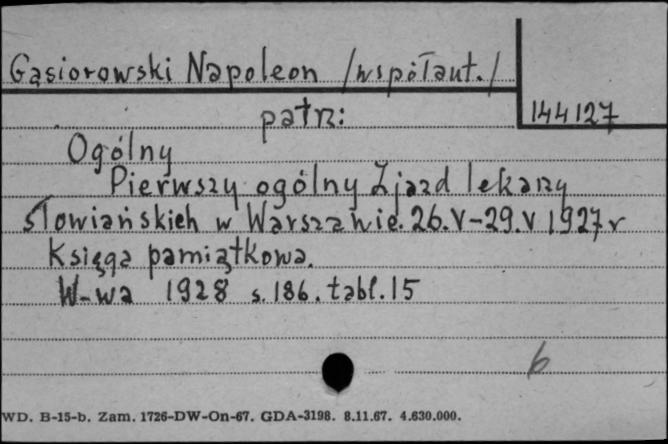 Gąsiorowski Napoleon /współaut./
144127
patrz:
Ogólny
Pierwszy ogólny Zjazd lekarzy
słowiańskich w Warszawie. 26.V-29.V 1927 r
Księga pamiątkowa.
W-wa 1928 s. 186. tabl. 15
6
WD. B-15-b. Zam. 1726-DW-On-67. GDA-3198. 8.11.67. 4.630.000.